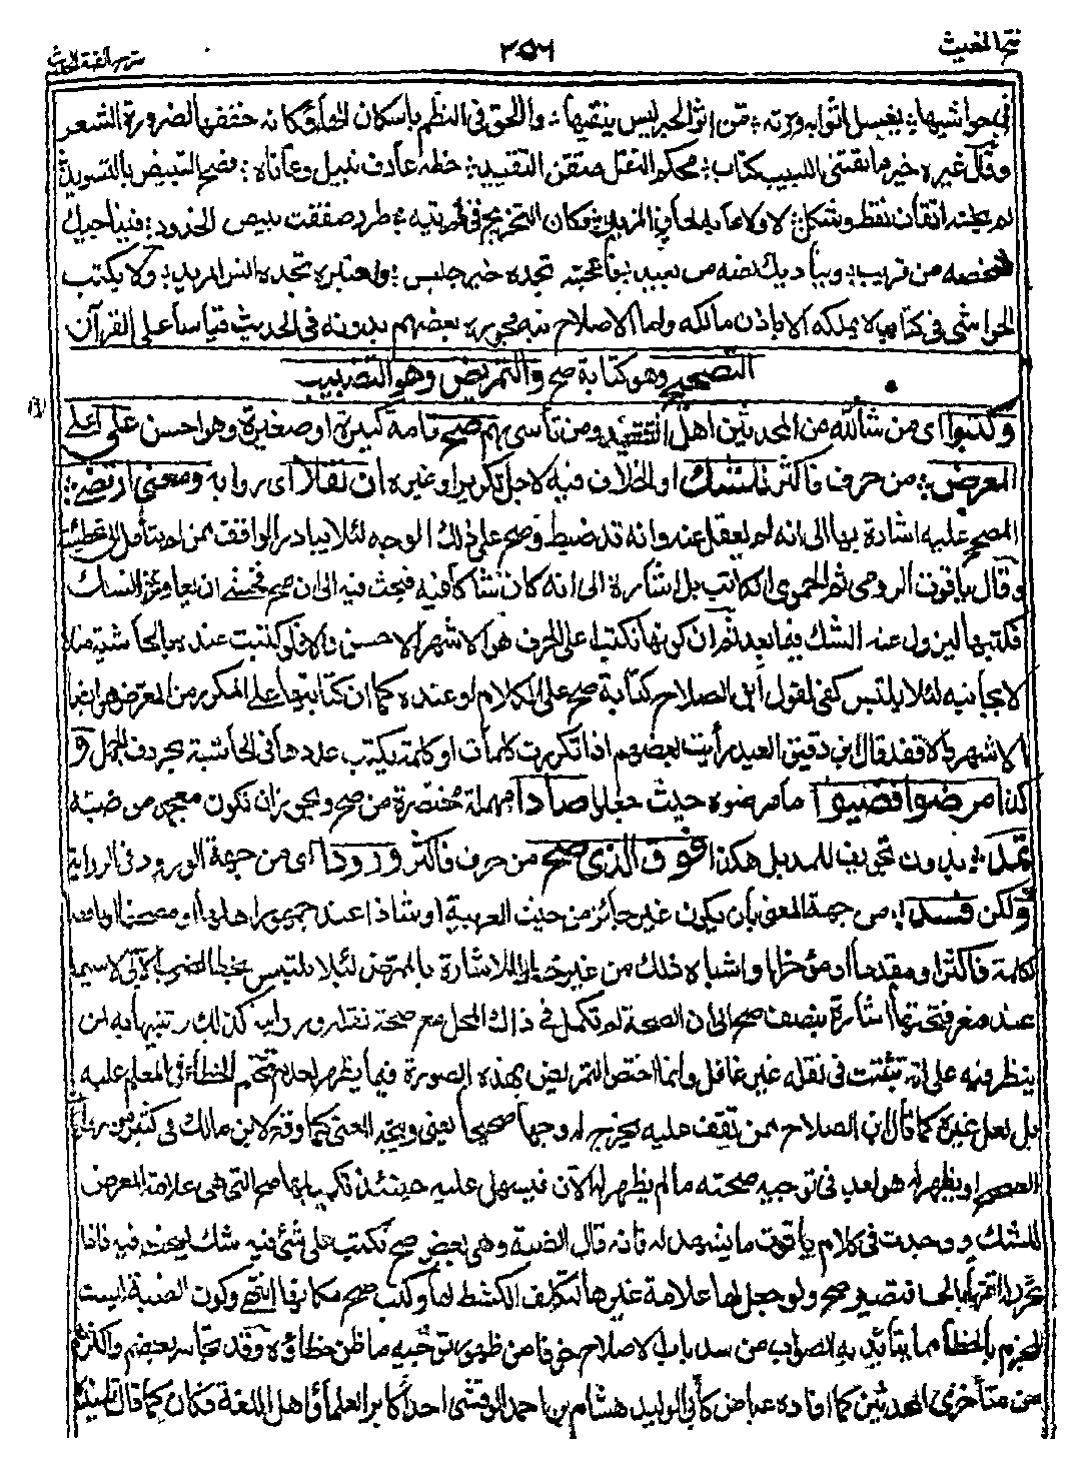 فتح المغيث
٢٥٦
شرح الفية الحديث
في حواشيها: بغسل اثوابه وبرته: فمن اثر الحبر ليس ينقيها: والحق في النظم باسكان وكانه خففها لضرورة الشعر
وقال غيره خير ما يقتنى اللبيب كتاب: محكم النقل متقن التقييد: خطه عارف نبيل وعاناه: فصح التبييض بالتسويد
لم يخنه اتقان نقط وشكل: لا ولا عابه لحاق المزيد: فكان التخريج في طرتيه: طرر صففت ببيض الخدود: فيناجيك
شخصه من قريب: ويناديك نصه من بعيد: تجده خير جليس: واختبره تجده انس المريد: ولا يكتب
الحواشي في كتاب لا يملكه الا باذن مالكه واما الاصلاح فيه فجوزه بعضهم بدونه في الحديث قياسا على القرآن
التصحيح وهو كتابة صح والتمريض وهو التضبيب
وكتبوا اى من شاء الله من المحدثين اهل التقييد ومن تأسى بهم صح تامة كبيرة او صغيرة وهو احسن على اعلى
المعرض: من حرف فاكثر للشك او الخلاف فيه لاجل تكرير او غيره ان نقلا اى رواية ومعنى ارتضى:
المصحح عليه اشارة بها الى انه لم يغفل عنه وانه قد ضبط وصح على ذلك الوجه لئلا يبادر الواقف ممن لم يتأمل الى تخطئته
وقال ياقوت الرومى ثم الحموى الكاتب بل اشارة الى انه كان شاكا فيه فبحث فيه الى ان صح فخشى ان يعاوده الشك
فكتبها ليزول عنه الشك فيما بعد ثم ان كونها تكتب على الحرف هو الاشهر الاحسن والا فلو كتبت عنده بالحاشية مثلا
لا بجانبه لئلا يلتبس كفى لقول ابن الصلاح كتابة صح على الكلام او عنده كما ان كتابتها على المكرر من المعرض هو ايضا
الاشهر والا فقد قال ابن دقيق العيد رأيت بعضهم اذا تكررت كلمات او كلمة يكتب عددها في الحاشية بحروف الجمل و
كذا مرضوا فضببوا ما مرضوه حيث جعلوا صادا مهملة مختصرة من صح ويجوز ان تكون معجمة من ضبة
تمد: بدون تجويف للمد بل هكذا فوق الذى صح من حرف فاكثر ورودا اى من جهة الورود في الرواية
ولكن فسد: من جهة المعنى بان يكون غير جائز من حيث العربية او شاذا عند جمهور اهلها او مصحفا او ناقصا
لكلمة فاكثر او مقدما او مؤخرا او اشباه ذلك من غير خلط للاشارة بالممرض لئلا يلتبس بخط الضرب الآتى لا سيما
عند صغر فتحتها اشارة بنصف صح الى ان الصحة لم تكمل في ذاك المحل مع صحة نقله وروايته كذلك وتنبيها به لمن
ينظر فيه على انه تثبت في نقله غير غافل وانما اختص التمريض بهذه الصورة فيما يظهر لعدم تحتم الخطاء في المعلم عليه
بل لعل غيره كما قال ابن الصلاح ممن يقف عليه يخرج له وجها صحيحا يعنى ويتجه المعنى كما وقع لابن مالك في كثير من روايات
الصحيح او يظهر له هو بعد في توجيه صحته ما لم يظهر له الآن فيسهل عليه حينئذ تكميلها صح التى هى علامة المعرض
للشك ووجدت في كلام ياقوت ما يشهد له فانه قال الضبة وهى بعض صح تكتب على شئ فيه شك ليبحث فيه فاذا
تحرر له اتمها بالحاء فتصير صح ولو جعل لها علامة غيرها لتكلف الكشط لها وكتب صح مكانها انتهى وكون الضبة ليست
للجزم بالخطا مما يتأيد به الصواب من سد باب الاصلاح خوفا من ظهور توجيه ما ظن خطاؤه وقد تجاسر بعضهم واكثرهم
من متأخرى المحدثين كما افاده عياض كأبى الوليد هشام بن احمد الوقشى احد اكابر العلماء واهل اللغة فكان كما قال تلميذه